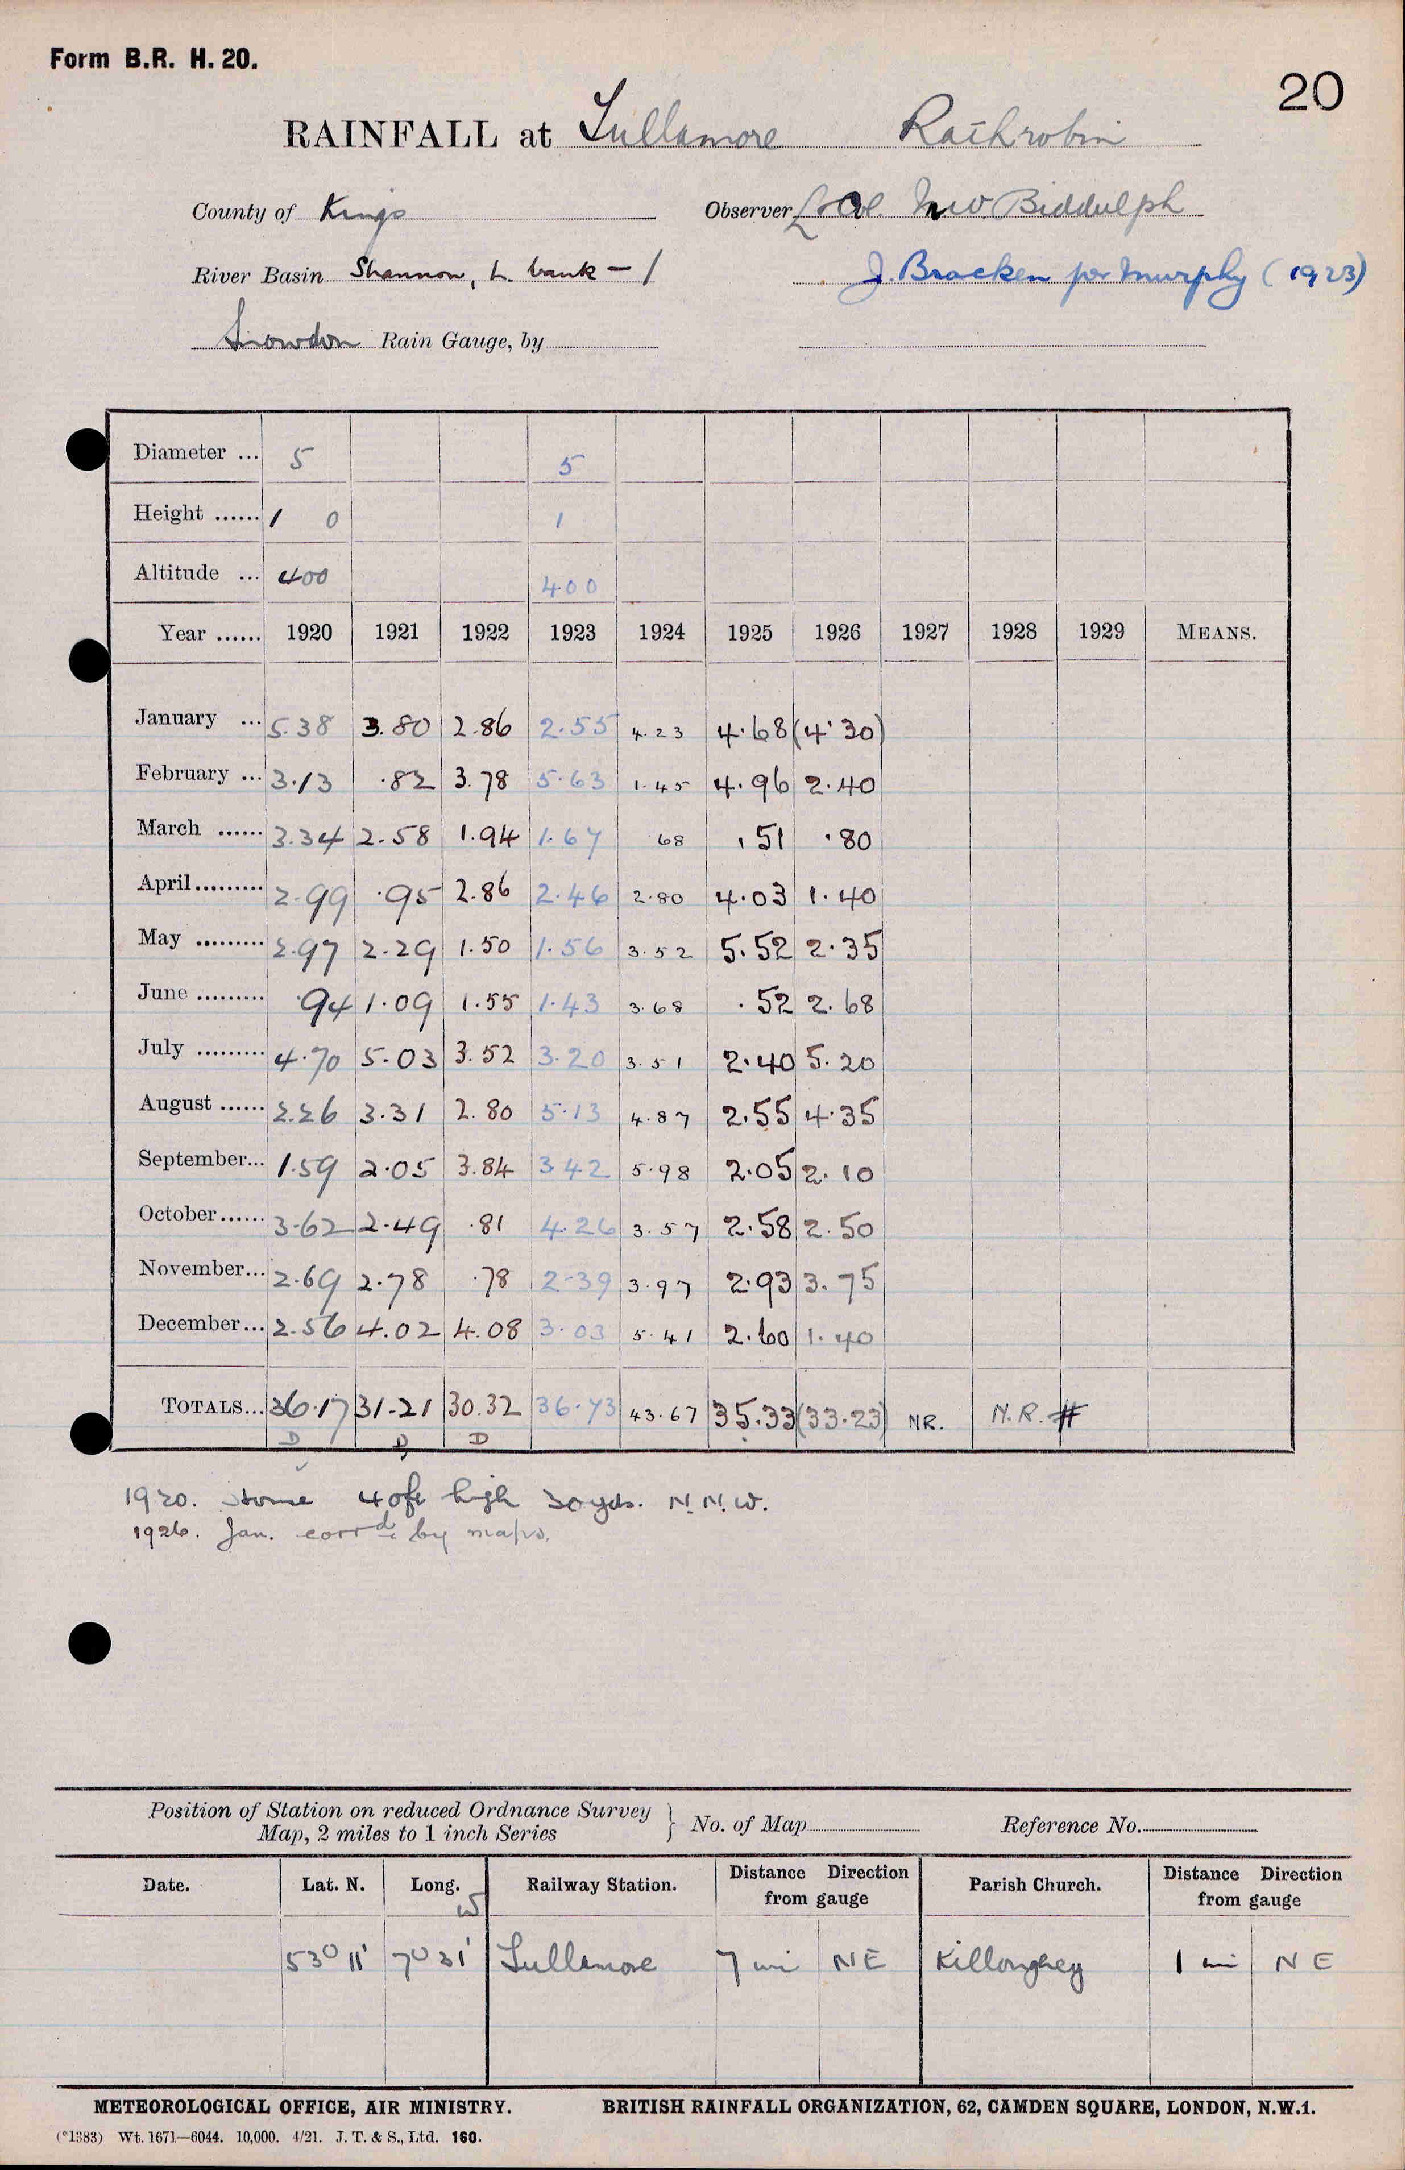 Form B.R. H. 20.
20
RAINFALL at Tullamore Rathrobin
County of Kings Observer Lt Col. M W. Biddulph
River Basin Shannon, L. bank - 1 J. Bracken per Murphy (1923)
Snowdon Rain Gauge, by
Diameter ... 5 5
Height ...... 1 0 1
Altitude ... 400 400
Year ...... 1920 1921 1922 1923 1924 1925 1926 1927 1928 1929 MEANS.
January ... 5.38 3.80 2.86 2.55 4.23 4.68 (4.30)
February ... 3.13 .82 3.78 5.63 1.45 4.96 2.40
March ...... 3.34 2.58 1.94 1.67 68 .51 .80
April......... 2.99 .95 2.86 2.46 2.80 4.03 1.40
May ......... 2.97 2.29 1.50 1.56 3.52 5.52 2.35
June ......... .94 1.09 1.55 1.43 3.68 .52 2.68
July ......... 4.70 5.03 3.52 3.20 3.51 2.40 5.20
August ...... 2.26 3.31 2.80 5.13 4.87 2.55 4.35
September... 1.59 2.05 3.84 3.42 5.98 2.05 2.10
October...... 3.62 2.49 .81 4.26 3.57 2.58 2.50
November... 2.69 2.78 .78 2.39 3.97 2.93 3.75
December... 2.56 4.02 4.08 3.03 5.41 2.60 1.40
TOTALS... 36.17 31.21 30.32 36.73 43.67 35.33 (33.23) NR. N.R. #
D D D
1920. House 40ft high 30yds. N.N.W.
1926. Jan. corrd. by maps.
Position of Station on reduced Ordnance Survey
Map, 2 miles to 1 inch Series } No. of Map Reference No.
Date. Lat. N. Long. W Railway Station. Distance Direction from gauge Parish Church. Distance Direction from gauge
53° 11' 7° 31' Tullamore 7 mi NE Killoughey 1 mi NE
METEOROLOGICAL OFFICE, AIR MINISTRY. BRITISH RAINFALL ORGANIZATION, 62, CAMDEN SQUARE, LONDON, N.W.1.
(*1383) Wt. 1671—6044. 10,000. 4/21. J. T. & S., Ltd. 160.